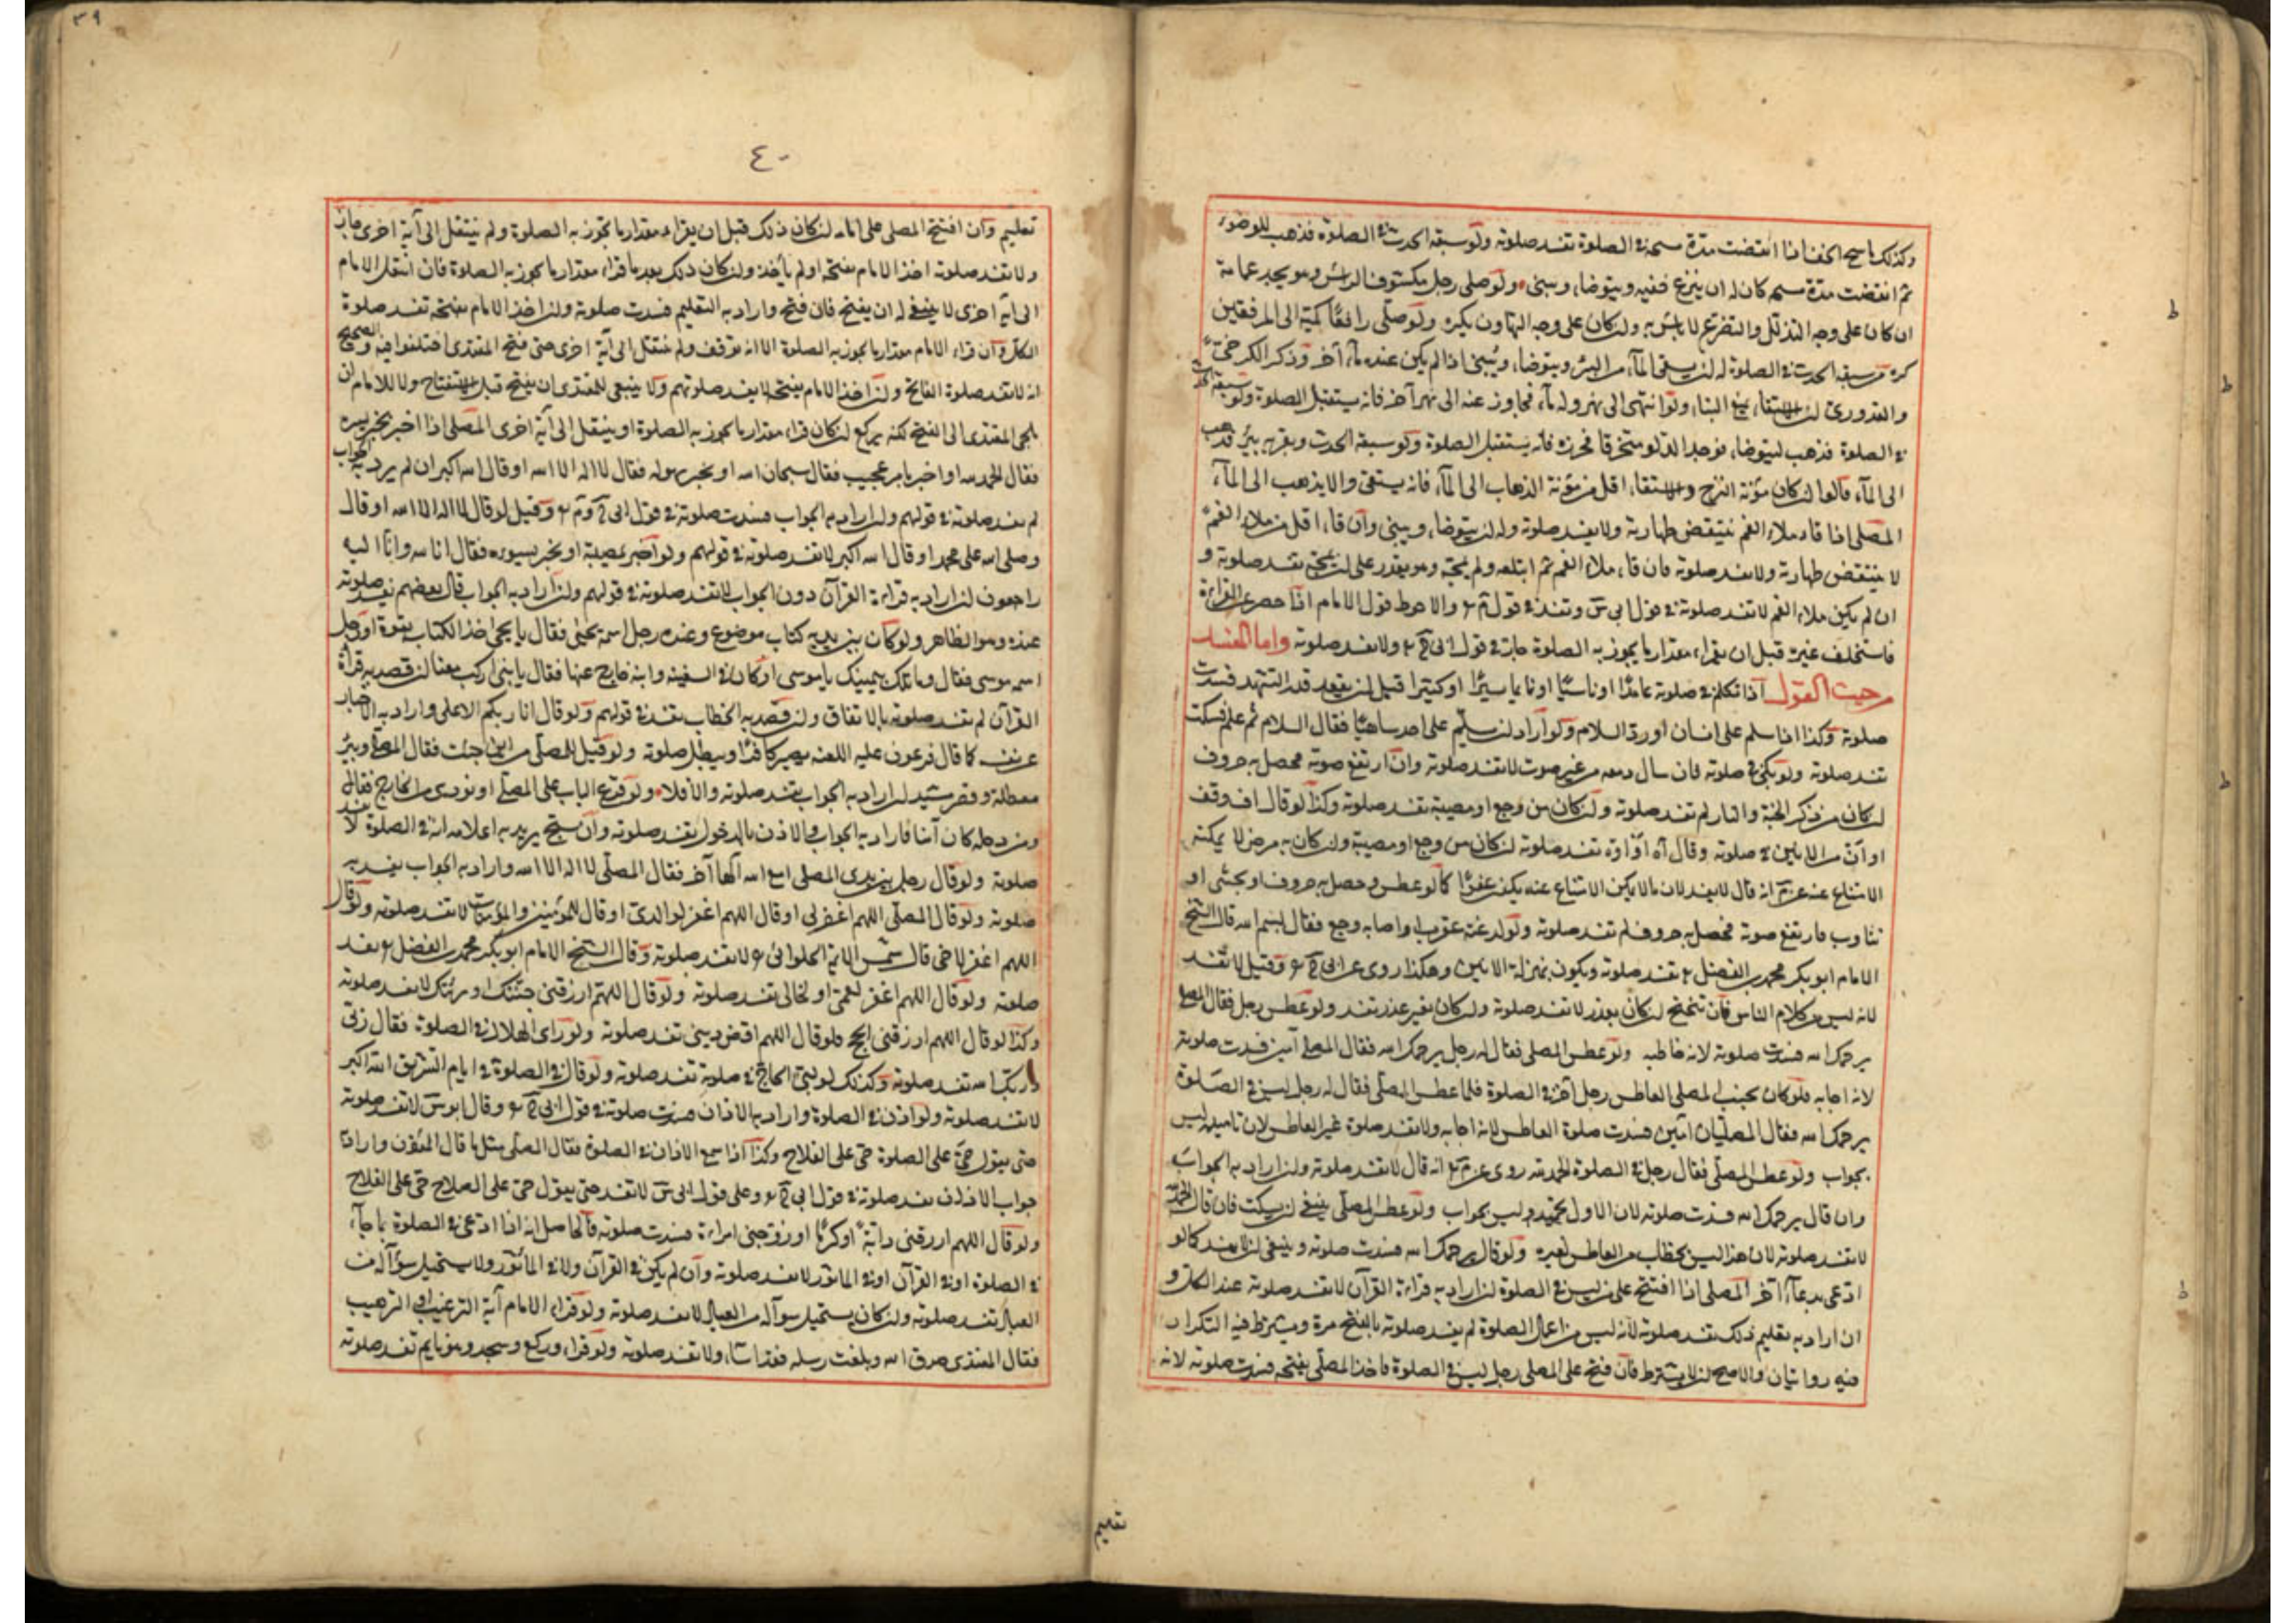 وكذلك ماسح الخف اذا انقضت مدة مسحه في الصلوة تفسد صلوته ولو سبقه الحدث في الصلوة فذهب للوضوء
ثم انقضت مدة مسحه كان له ان ينزع خفيه ويتوضاء ويبني ولو صلى رجل مكشوف الرأس وهو يجد عمامة
ان كان على وجه التذلل والتضرع لا بأس به وان كان على وجه التهاون يكره ولو صلى رافعا كميه الى المرفقين
كره من سبقه الحدث في الصلوة له ان يستقي الماء من البئر ويتوضاء ويبني اذا لم يكن عنده ماء آخر وذكر الكرخي
والقدوري ان الاستقاء يمنع البناء ولو انتهى الى نهر وله ماء فجاوز عنه الى نهر آخر فانه يستقبل الصلوة ولو سبقه الحدث
في الصلوة فذهب ليتوضاء فوجد الدلو متخرقا فخرزه فانه يستقبل الصلوة ولو سبقه الحدث وبقربه بئر فذهب
الى الماء قالوا ان كان مؤنة النزح والاستقاء اقل من مؤنة الذهاب الى الماء فانه يستقي والا يذهب الى الماء
المصلى اذا قاء ملاء الفم ينتقض طهارته ولا يفسد صلوته وله ان يتوضاء ويبني وان قاء اقل من ملاء الفم
لا ينتقض طهارته ولا تفسد صلوته فان قاء ملاء الفم ثم ابتلعه ولم يمجه وهو يقدر على ان يمجه تفسد صلوته و
ان لم يكن ملاء الفم لا تفسد صلوته في قول ابي س وتفسد في قول م والاحوط قول الامام اذا حصر عن القراءة
فاستخلف غيره قبل ان يقراء مقدار ما يجوز به الصلوة جاز في قول ابي ح ولا تفسد صلوته واما المفسد
من حيث القول اذا تكلم في صلوته عامدا او ناسيا او نائما يسيرا او كثيرا قبل ان يقعد قدر التشهد فسدت
صلوته وكذا اذا سلم على انسان او رد السلام ولو اراد ان يسلم على احد ساهيا فقال السلام ثم علم فسكت
تفسد صلوته ولو بكى في صلوته فان سال دمعه من غير صوت لا تفسد صلوته وان ارتفع صوته فحصل به حروف
ان كان من ذكر الجنة والنار لم تفسد صلوته وان كان من وجع او مصيبة تفسد صلوته وكذا لو قال اف وقف
او أنّ من الانين في صلوته وقال آه او اوه تفسد صلوته ان كان من وجع او مصيبة وان كان به مرض لا يمكنه
الامتناع عنه عن م انه قال لا يفسد لان ما لا يمكن الامتناع عنه يكون عفوا كما لو عطس وحصل به حروف او تجشى او
تثاوب فارتفع صوته فحصل به حروف لم تفسد صلوته ولو لدغته عقرب او اصابه وجع فقال بسم الله قال الشيخ
الامام ابو بكر محمد بن الفضل تفسد صلوته ويكون بمنزلة الانين وهكذا روى عن ابي ح وقيل لا تفسد
لانه ليس من كلام الناس فان تنحنح ان كان بعذر لا تفسد صلوته وان كان بغير عذر تفسد ولو عطس رجل فقال المصلى
يرحمك الله فسدت صلوته لانه خاطبه ولو عطس المصلى فقال له رجل يرحمك الله فقال المصلى آمين فسدت صلوته
لانه اجابه فلو كان بجنب المصلى العاطس رجل آخر في الصلوة فلما عطس المصلى فقال له رجل ليس في الصلوة
يرحمك الله فقال المصليان آمين فسدت صلوة العاطس لانه اجابه ولا تفسد صلوة غير العاطس لان تامينه ليس
بجواب ولو عطس المصلى فقال رجل في الصلوة الحمد لله روى عن م انه قال لا تفسد صلوته وان اراد به الجواب
وان قال يرحمك الله فسدت صلوته لان الاول تحميد وليس بجواب ولو عطس المصلى ينبغي ان يسكت فان قال الحمد لله
لا تفسد صلوته لان هذا ليس بخطاب من العاطس لغيره ولو قال يرحمك الله فسدت صلوته وينبغي ان لا يفسد كما لو
ادعى بدعاء آخر المصلى اذا افتتح على من ليس في الصلوة ان اراد به قراءة القرآن لا تفسد صلوته عند الكل و
ان اراد به تعليم ذلك تفسد صلوته لانه ليس من اعمال الصلوة لم يفسد صلوته بالفتح مرة ويشترط فيه التكرار
فيه روايتان والاصح ان لا يشترط فان فتح على المصلى رجل ليس في الصلوة فاخذ المصلى بفتحه فسدت صلوته لانه
تعليم
٣٩
٤٠
تعليم وان افتتح المصلى على امامه ان كان ذلك قبل ان يقراء مقدار ما تجوز به الصلوة ولم ينتقل الى آية اخرى جاز
ولا تفسد صلوته اخذ الامام بفتحه او لم يأخذ وان كان ذلك بعد ما قراء مقدار ما يجوز به الصلوة فان انتقل الامام
الى آية اخرى لا ينبغي له ان يفتح فان فتح واراد به التعليم فسدت صلوته وان اخذ الامام بفتحه تفسد صلوة
الكل وان قراء الامام مقدار ما يجوز به الصلوة الا انه توقف ولم ينتقل الى آية اخرى حتى فتح المقتدى اختلفوا فيه والصحيح
انه لا تفسد صلوة الفاتح وان اخذ الامام بفتحه لا يفسد صلوتهم ولا ينبغي للمقتدى ان يفتح قبل الاستفتاح ولا للامام ان
يلجئ المقتدى الى الفتح لكنه يركع ان كان قراء مقدار ما يجوز به الصلوة او ينتقل الى آية اخرى المصلى اذا اخبر بخبر يسره
فقال الحمد لله او اخبر بامر عجيب فقال سبحان الله او بخبر يهوله فقال لا اله الا الله او قال الله اكبر ان لم يرد به الجواب
لم تفسد صلوته في قولهم وان اراد به الجواب فسدت صلوته في قول ابي ح و م وقيل لو قال لا اله الا الله او قال
وصلى الله على محمد او قال الله اكبر لا تفسد صلوته في قولهم ولو اخبر بمصيبة او بخبر يسوءه فقال انا لله وانا اليه
راجعون ان اراد به قراءة القرآن دون الجواب لا تفسد صلوته في قولهم وان اراد به الجواب قال بعضهم تفسد صلوته
عنده وهو الظاهر ولو كان بين يديه كتاب موضوع وعنده رجل اسمه يحيى فقال يا يحيى خذ الكتاب بقوة او رجل
اسمه موسى فقال وما تلك بيمينك يا موسى او كان في السفينة وابنه خارج عنها فقال يا بني اركب معنا ان قصد به قراءة
القرآن لم تفسد صلوته بالاتفاق وان قصد به الخطاب تفسد في قولهم ولو قال انا ربكم الاعلى واراد به الاخبار
عن نفسه كما قال فرعون عليه اللعنه يصير كافرا ويبطل صلوته ولو قيل للمصلى من اين جئت فقال المصلى وبئر
معطلة وقصر مشيد ان اراد به الجواب تفسد صلوته والا فلا ولو قرع الباب على المصلى او نودى من الخارج فقال
ومن دخله كان آمنا فاراد به الجواب والاذن بالدخول تفسد صلوته وان سبح يريد به اعلامه انه في الصلوة لا تفسد
صلوته ولو قال رجل بين يدى المصلى امع الله آلها آخر فقال المصلى لا اله الا الله واراد به الجواب تفسد به
صلوته ولو قال المصلى اللهم اغفر لي او قال اللهم اغفر لوالدي او قال للمؤمنين والمؤمنات لا تفسد صلوته ولو قال
اللهم اغفر لاخي قال شمس الائمة الحلوائي لا تفسد صلوته وقال الشيخ الامام ابو بكر محمد بن الفضل تفسد
صلوته ولو قال اللهم اغفر لعمي او لخالي تفسد صلوته ولو قال اللهم ارزقني جنتك او رؤيتك لا تفسد صلوته
وكذا لو قال اللهم ارزقني الحج فلو قال اللهم اقض ديني تفسد صلوته ولو رأى الهلال في الصلوة فقال ربي
وربك الله تفسد صلوته وكذلك لو لبى الحاج في صلوته تفسد صلوته ولو قال في الصلوة في ايام التشريق الله اكبر
لا تفسد صلوته ولو اذن في الصلوة واراد به الاذان فسدت صلوته في قول ابي ح وقال ابو س لا تفسد صلوته
حتى يقول حي على الصلوة حي على الفلاح وكذا اذا سمع الاذان في الصلوة فقال المصلى مثل ما قال المؤذن واراد
جواب الاذان تفسد صلوته في قول ابي ح وعلى قول ابي س لا تفسد حتى يقول حي على الصلاح حي على الفلاح
ولو قال اللهم ارزقني دابة او كرما او زوجني امراءة فسدت صلوته فالحاصل انه اذا ادعى في الصلوة بما جاء
في الصلوة او في القرآن او في المأثور لا تفسد صلوته وان لم يكن في القرآن ولا في المأثور ولا يستحيل سؤاله من
العباد تفسد صلوته وان كان يستحيل سؤاله من العباد لا تفسد صلوته ولو قراء الامام آية الترغيب او الترهيب
فقال المقتدى صدق الله وبلغت رسله فقد اساء ولا تفسد صلوته ولو قراء وركع وسجد وهو نايم تفسد صلوته